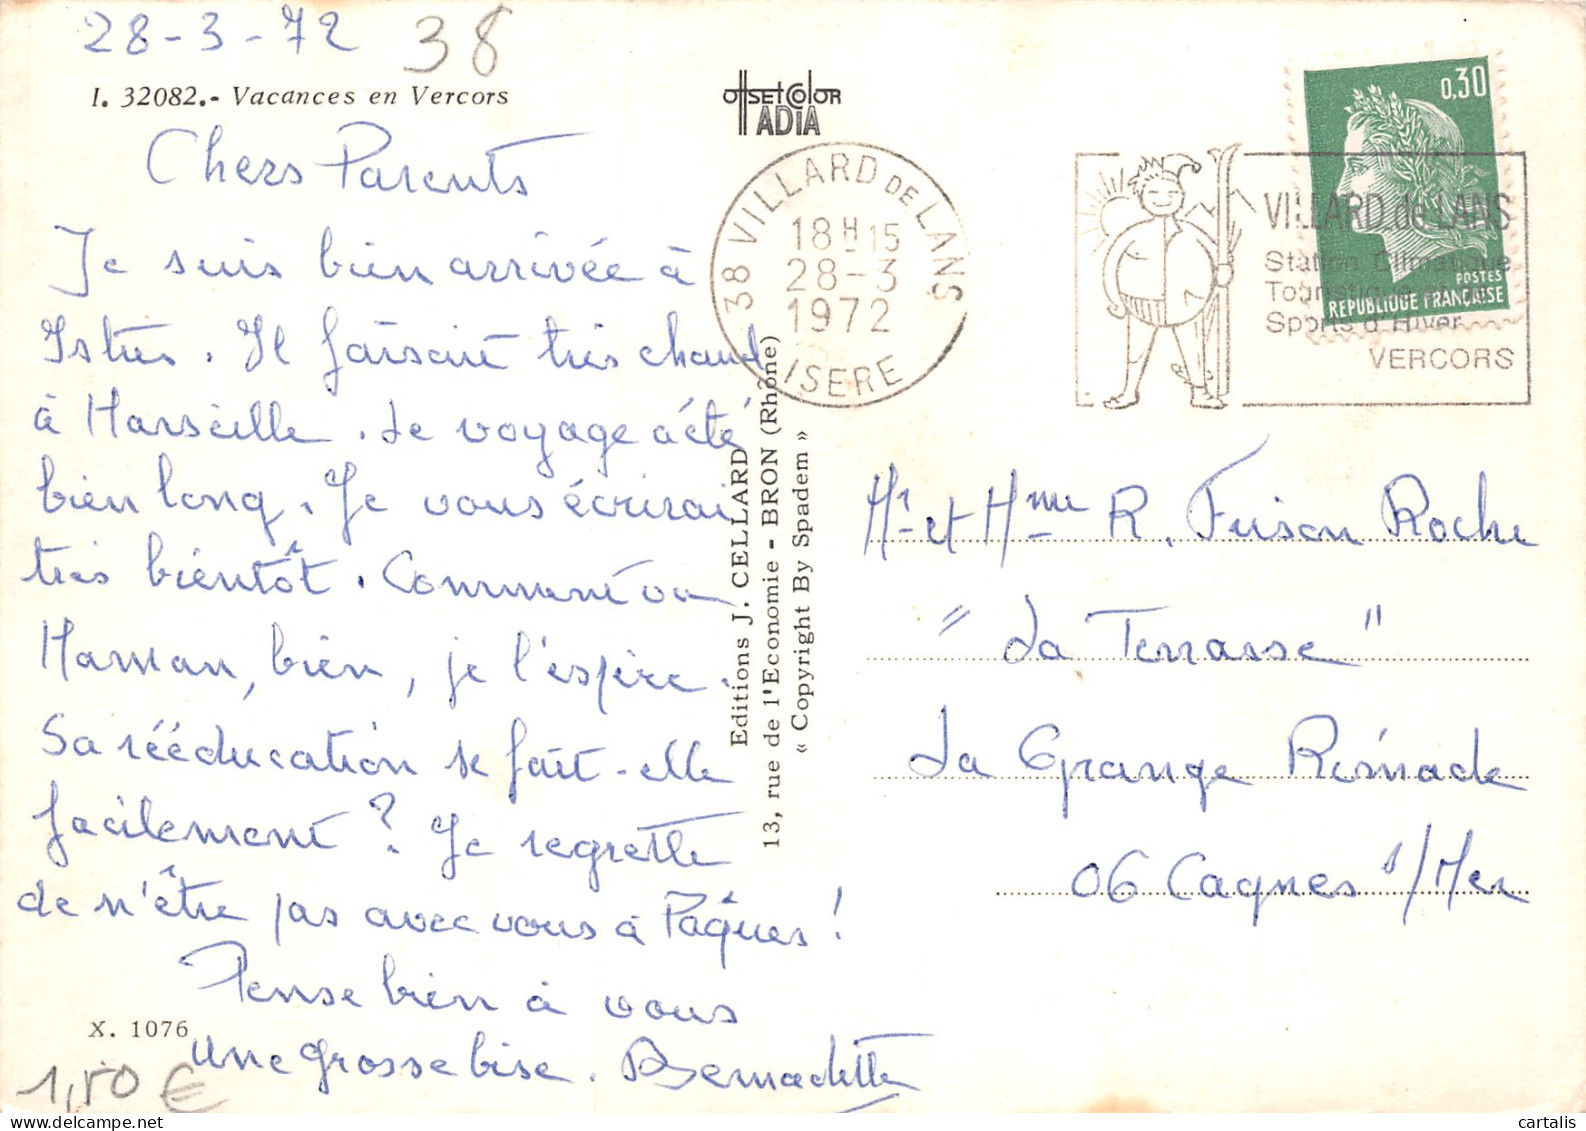 28-3-72 38
I. 32082.- Vacances en Vercors
Chers Parents
Je suis bien arrivée à
Istres. Il faisait très chaud
à Marseille. Le voyage a été
bien long. Je vous écrirai
très bientôt. Comment va
Maman, bien, je l'espère.
Sa rééducation se fait-elle
facilement ? Je regrette
de n'être pas avec vous à Pâques !
Pense bien à vous
une grosse bise. Bernadette
X. 1076
1,50 €
OFFSETCOLOR
ADIA
Editions J. CELLARD
13, rue de l'Economie - BRON (Rhône)
« Copyright By Spadem »
38 VILLARD DE LANS
18H15
28-3
1972
ISERE
VILLARD de LANS
Station Climatique
Touristique et de
Sports d'Hiver
VERCORS
0,30
POSTES
REPUBLIQUE FRANÇAISE
Mr et Mme R. Frison Roche
"La Terrasse"
La Grange Rimade
06 Cagnes s/Mer
cartalis